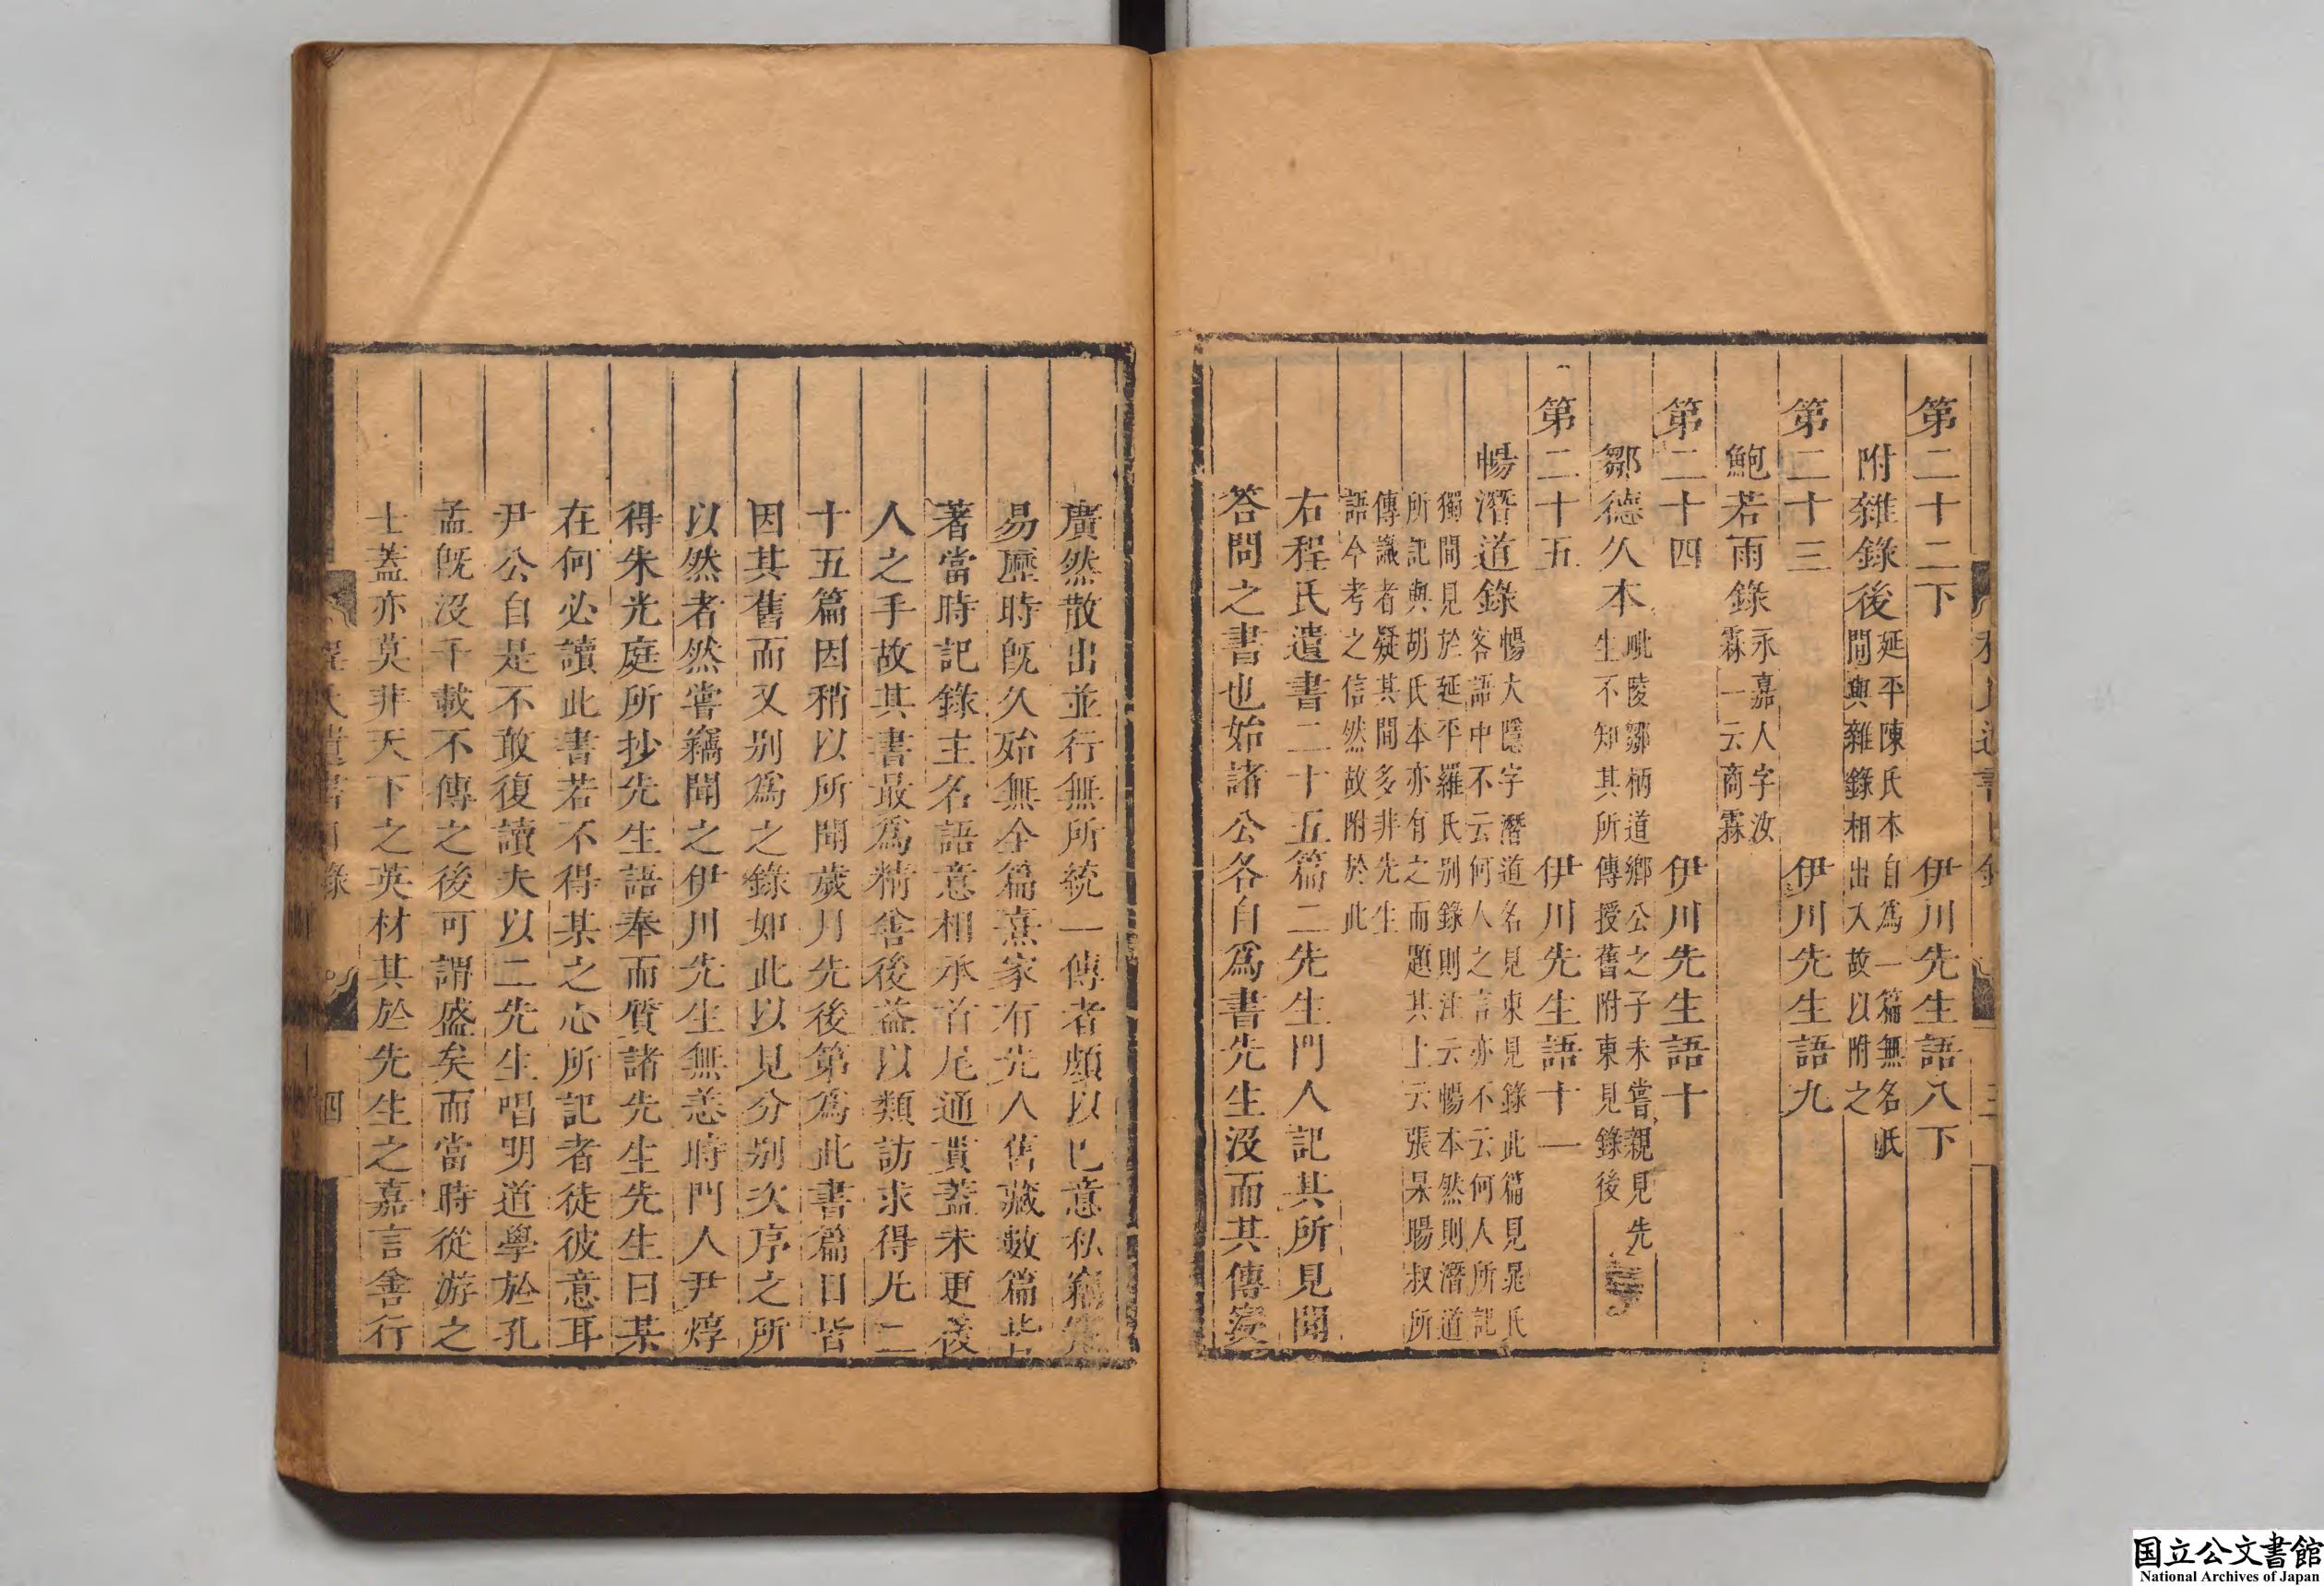 第二十二下　伊川先生語八下
附雜錄後
延平陳氏本自爲一篇無名氏
間與雜錄相出入故以附之
第二十三　伊川先生語九
鮑若雨錄
永嘉人字汝
霖一云商霖
第二十四　伊川先生語十
鄒德久本
毗陵鄒柄道鄉公之子未嘗親見先
生不知其所傳授舊附東見錄後
第二十五　伊川先生語十一
暢潛道錄
暢大隱字潛道名見東見錄此篇見晁氏
客語中不云何人之言亦不云何人所記
獨間見於延平羅氏別錄則注云暢本然則潛道
所記與胡氏本亦有之而題其上云張杲暘叔所
傳識者疑其間多非先生
語今考之信然故附於此
右程氏遺書二十五篇二先生門人記其所見聞
答問之書也始諸公各自爲書先生没而其傳寖
廣然散出並行無所統一傳者頗以己意私竊竄
易歷時旣久殆無全篇熹家有先人舊藏數篇皆
著當時記錄主名語意相承首尾通貫蓋未更後
人之手故其書最爲精善後益以類訪求得凡二
十五篇因稍以所聞歲月先後第爲此書篇目皆
因其舊而又别爲之錄如此以見分别次序之所
以然者然嘗竊聞之伊川先生無恙時門人尹焞
得朱光庭所抄先生語奉而質諸先生先生曰某
在何必讀此書若不得某之心所記者徒彼意耳
尹公自是不敢復讀夫以二先生唱明道學於孔
孟旣没千載不傳之後可謂盛矣而當時從游之
士蓋亦莫非天下之英材其於先生之嘉言善行
程氏遺書目錄
四
国立公文書館
National Archives of Japan